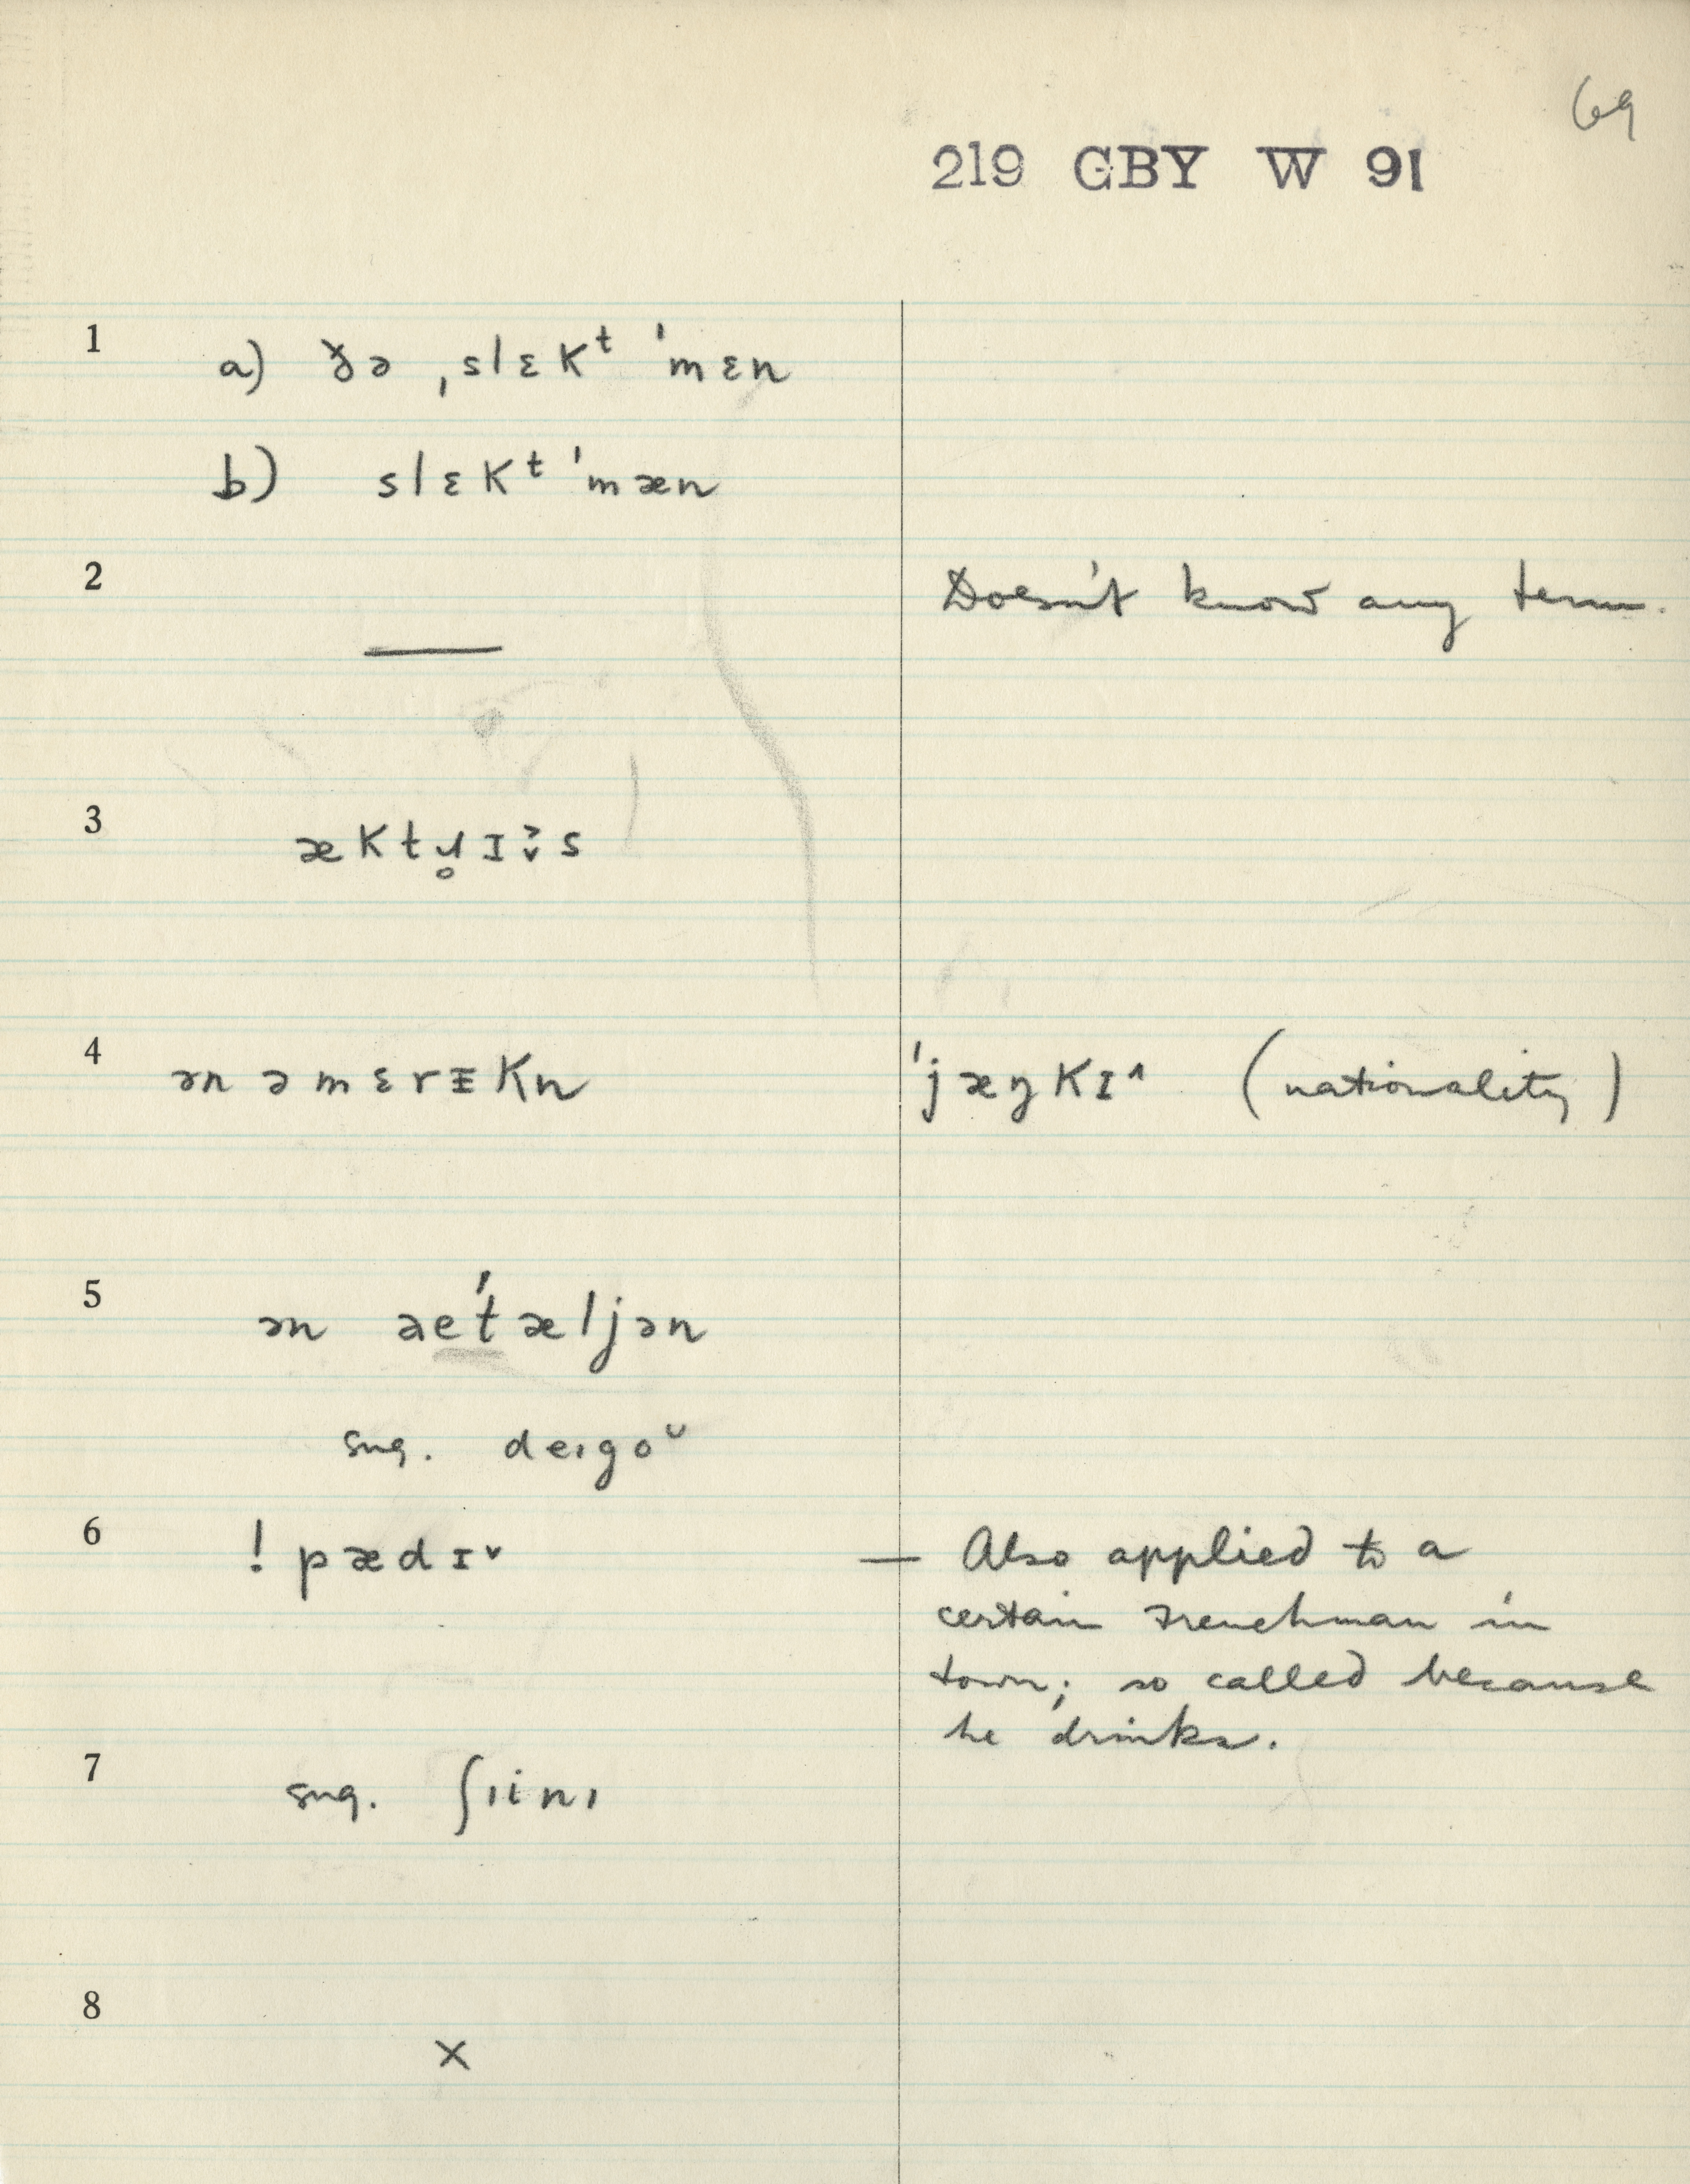 69
219 GBY W 91
1 a) ðə ˌslɛkᵗ ˈmɛn
b) slɛkᵗ ˈmæn
2 — Doesn't know any term.
3
4 ən əmɛrᵻkn ˈjæŋkɪ˄ (nationality)
5 ən aeˈtæljən
sug. deɪgoᵕ
6 ! pædɪ˅ — Also applied to a
certain Frenchman in
town; so called because
he drinks.
7 sug. ʃıinı
8 ×